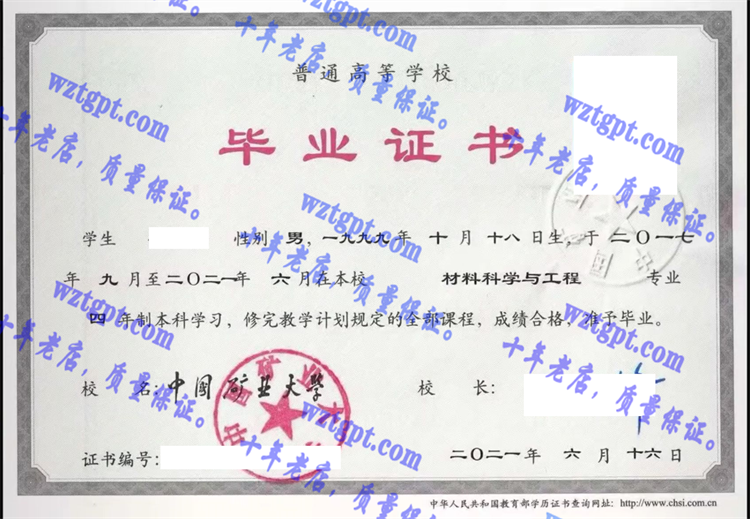 普通高等学校
毕业证书
学生 性别 男，一九九九年 十 月 十八日生，于 二〇一七
年 九 月至二〇二一年 六 月在本校 材料科学与工程 专业
四 年制本科学习，修完教学计划规定的全部课程，成绩合格，准予毕业。
校 名：中国矿业大学 校 长：
证书编号： 二〇二一年 六 月 十六日
中华人民共和国教育部学历证书查询网址：http://www.chsi.com.cn
wztgpt.com
十年老店，质量保证。
wztgpt.com
十年老店，质量保证。
wztgpt.com
十年老店，质量保证。
wztgpt.com
十年老店，质量保证。
wztgpt.com
十年老店，质量保证。
wztgpt.com
十年老店，质量保证。
wztgpt.com
十年老店，质量保证。